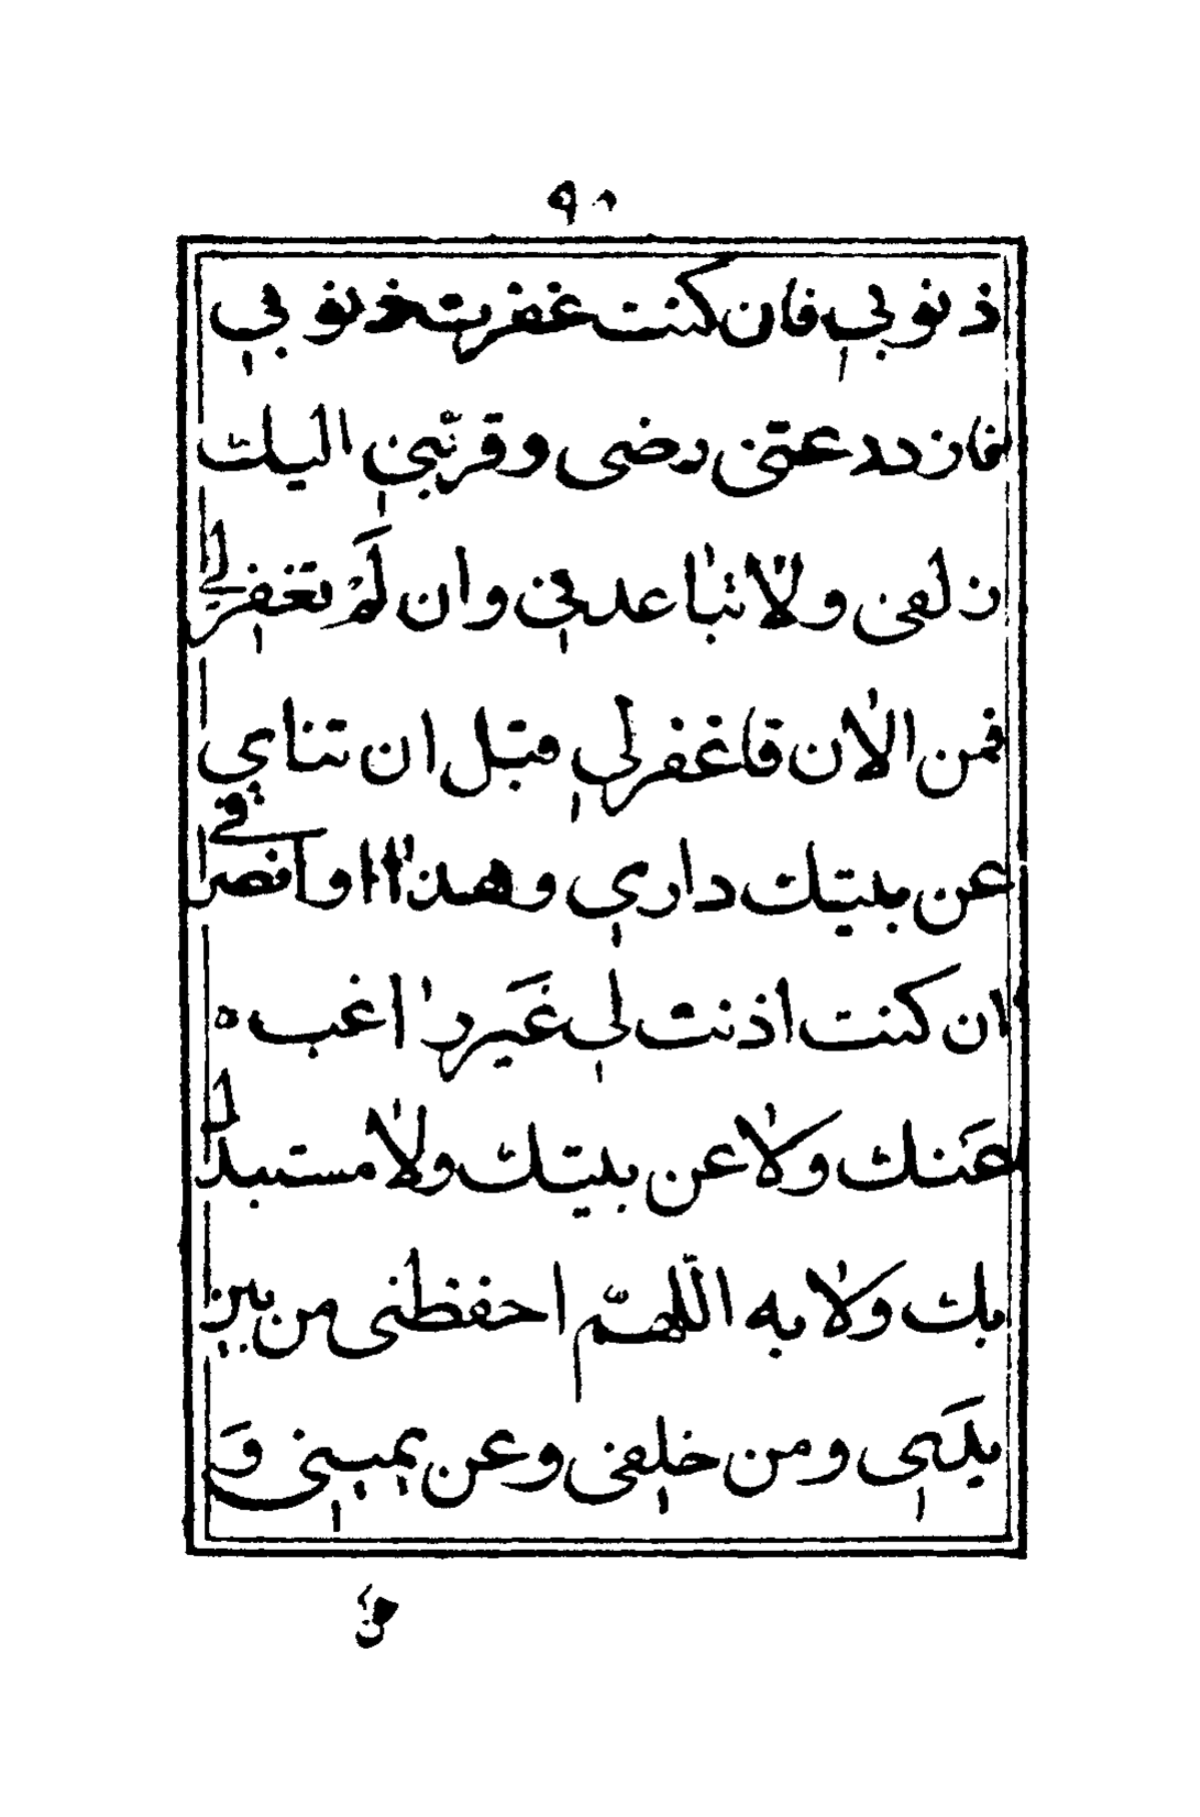 ٩٠
ذنوبي فان كنت غفرت ذنوبي
فازدد عتى رضى وقرّبني اليك
زلفى ولا تباعدني وان لَمْ تغفرلي
فمن الان فاغفرلي قبل ان تناي
عن بيتك داري وهذا اوانصرا في
ان كنت اذنت لي غَير راغب ه
عَنك ولا عن بيتك ولا مستبدل
بك ولا به اللّهمّ احفظنى من بين
يدَي ومن خلفى وعن يميني وَ